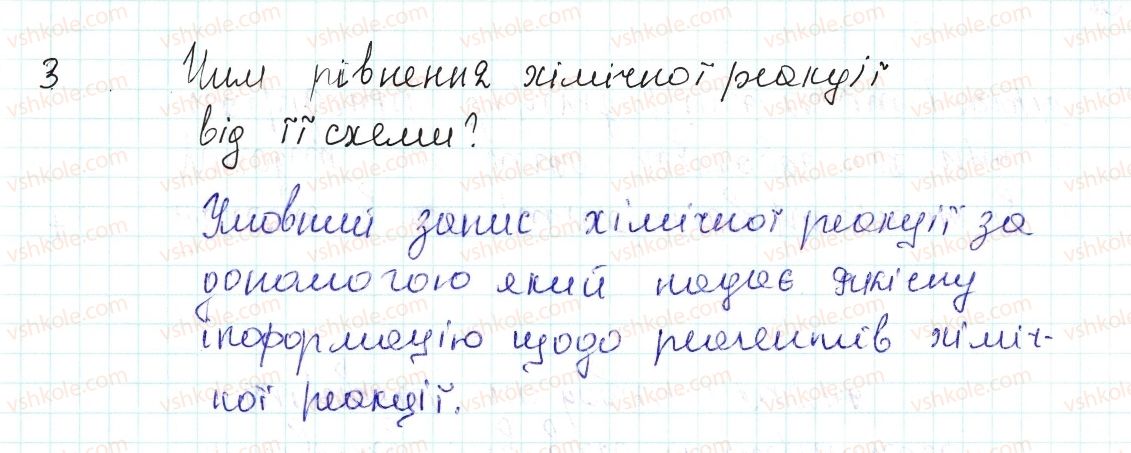 3 Чим рівнення хімічної реакції
від її схеми?
Умовний запис хімічної реакції за
допомогою який надає якісну
інформацію щодо реагентів хіміч-
ної реакції.